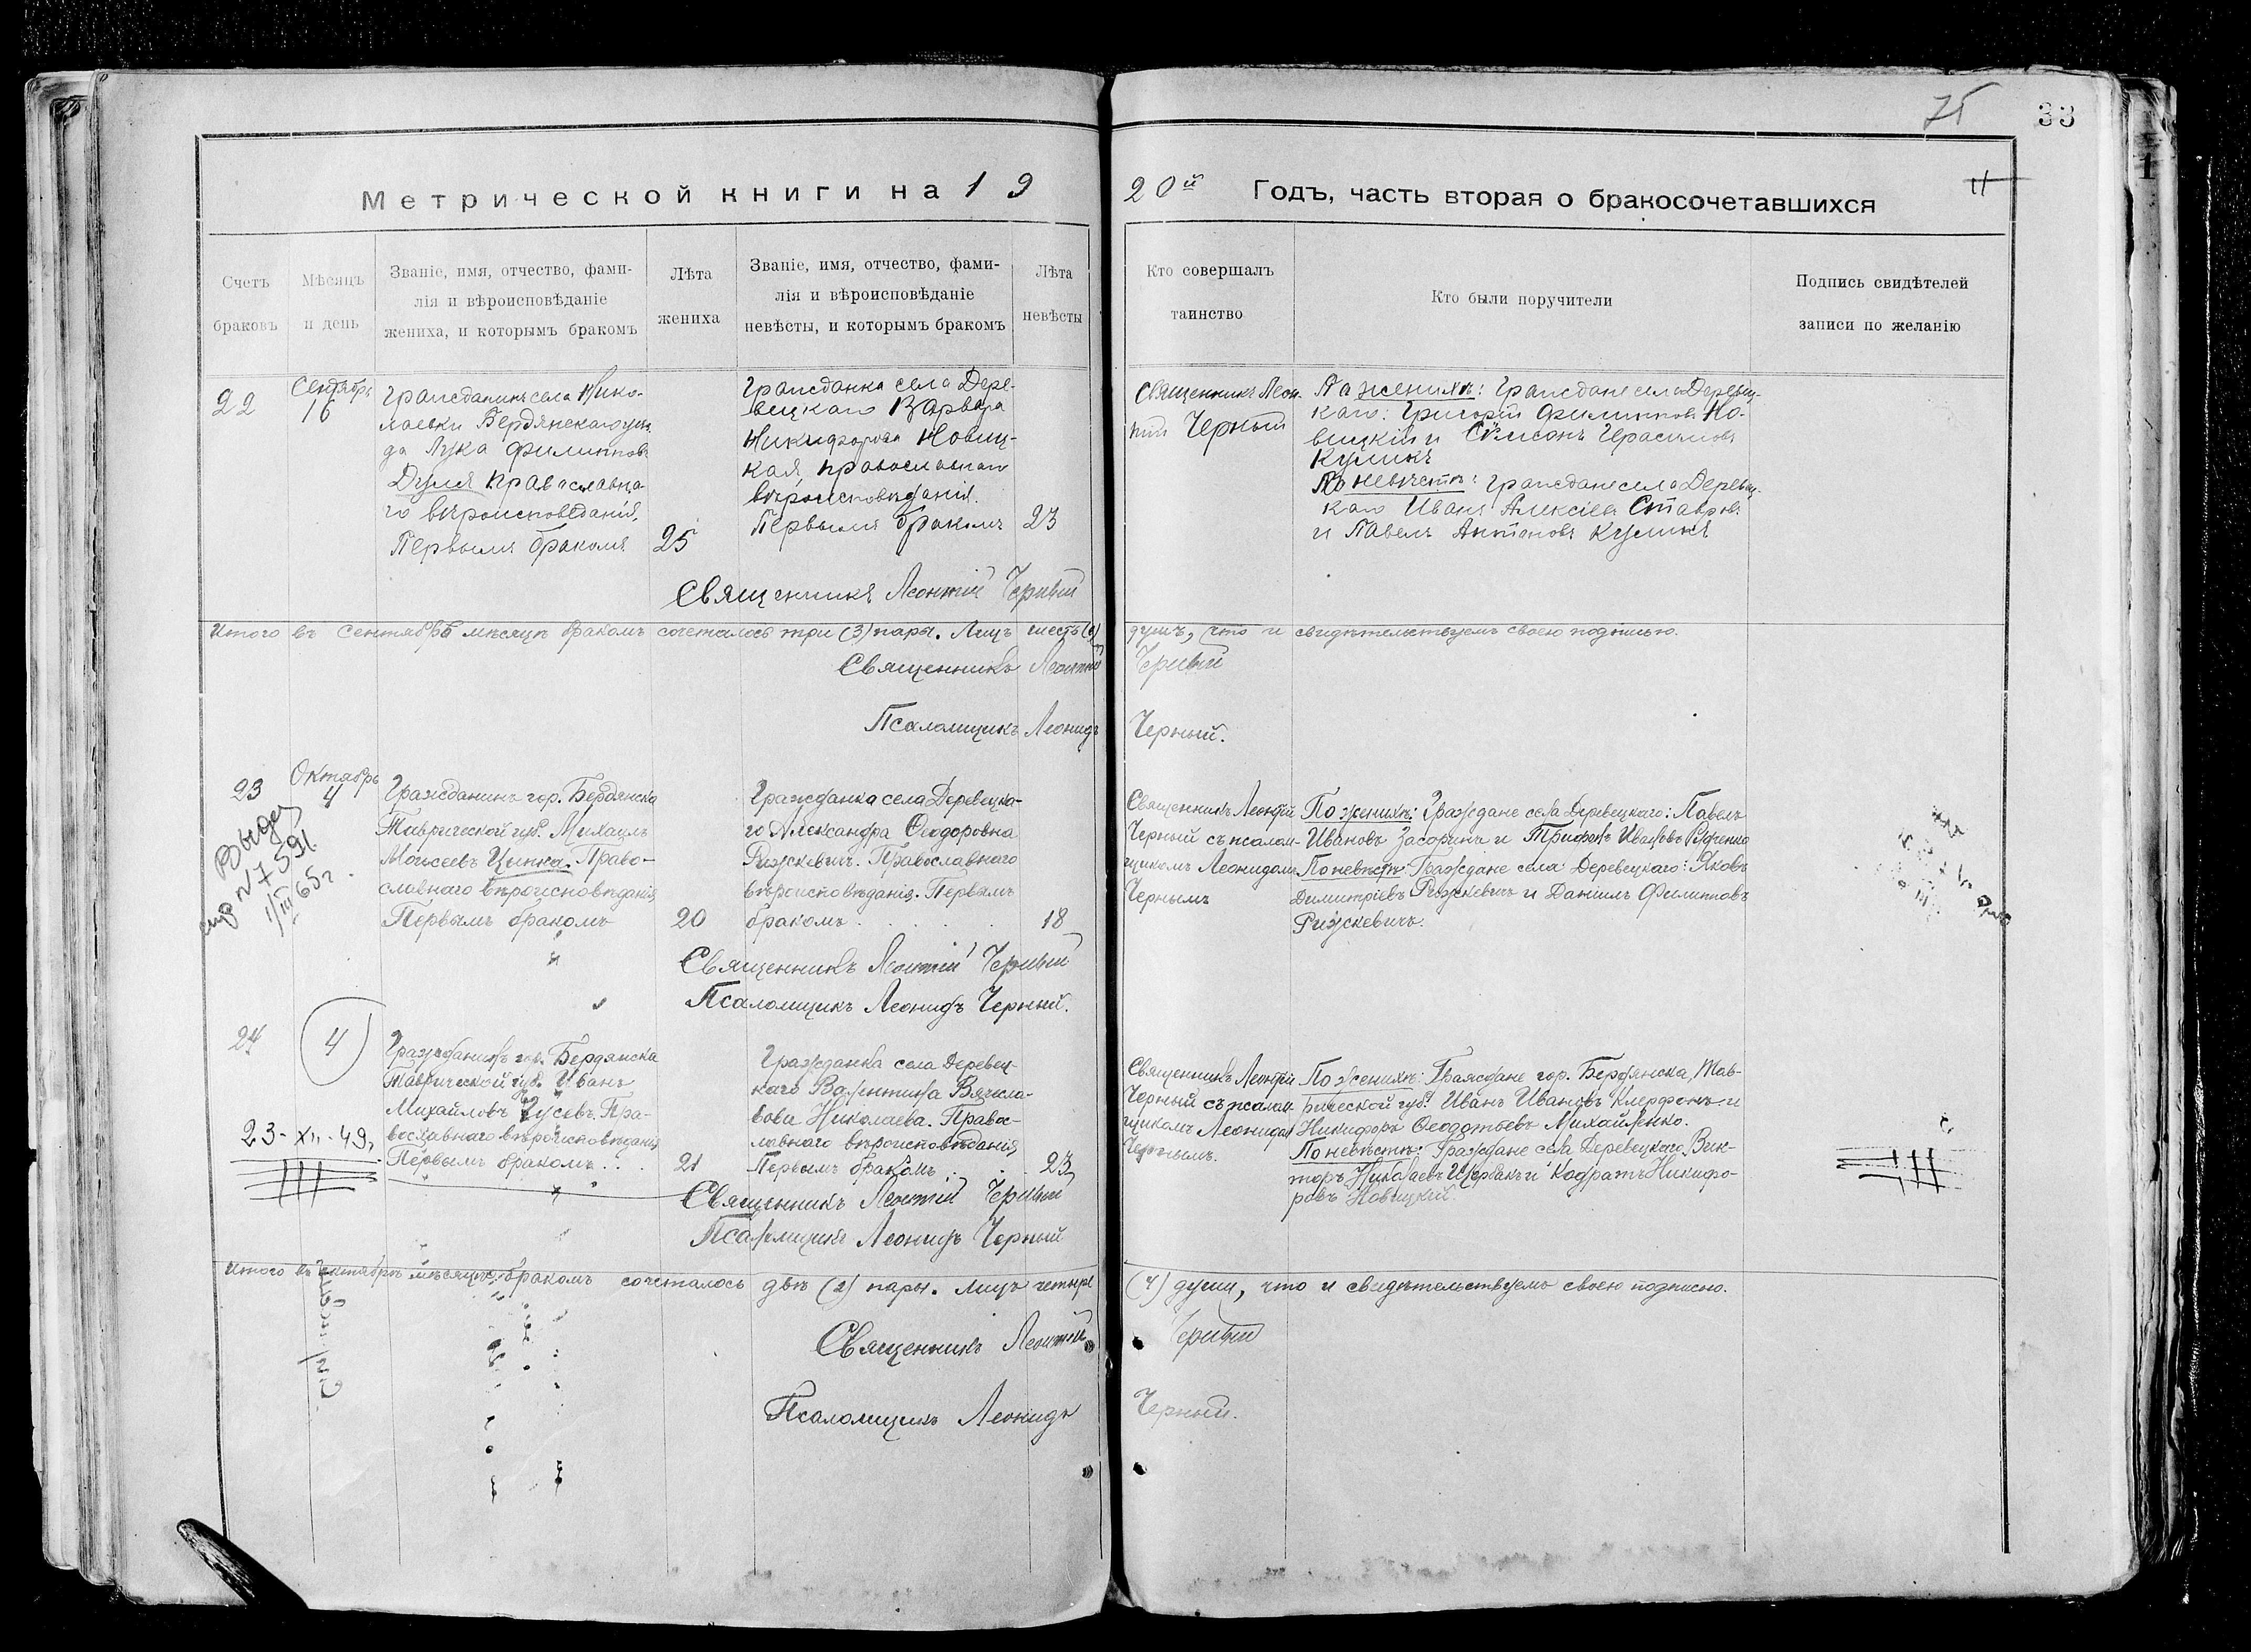 75
33
Метрической книги на 19
20й Годъ, часть вторая о бракосочетавшихся
11
Счетъ
браковъ
Мѣсяцъ
и день
Званіе, имя, отчество, фами-
лія и вѣроисповѣданіе
жениха, и которымъ бракомъ
Лѣта
жениха
Званіе, имя, отчество, фами-
лія и вѣроисповѣданіе
невѣсты, и которымъ бракомъ
Лѣта
невѣсты
Кто совершалъ
таинство
Кто были поручители
Подпись свидѣтелей
записи по желанію
22
Сентябрь
16
Гражданинъ села Нико-
лаевки Бердянскаго уѣз-
да Лука Филипповъ
Дуля православна-
го вѣроисповеданія,
Первымъ бракомъ
25
Гражданка села Дере-
вецкаго Варвара
Никифорова Новиц-
кая, православнаго
вѣроисповѣданія.
Первымъ бракомъ
23
Священникъ Леон-
тій Черный
По женихѣ: Граждане села Деревец-
каго: Григорій Филипповъ Но-
вицкій и Симеонъ Герасимовъ
Куликъ
По невѣстѣ: Граждане села Деревец-
каго Иванъ Алексіевъ Ставровъ
и Павелъ Антоновъ Куликъ
Священникъ Леонтій Черный
Итого въ Сентябрѣ мѣсяцѣ бракомъ сочеталось три (3) пары. Лицъ шесть (6)
душъ, что и свидѣтельствуемъ своею подписью.
Священникъ Леонтій
Черный
Псаломщикъ Леонидъ
Черный.
23
Октябрь
4
Гражданинъ гор. Бердянска
Таврической губ. Михаилъ
Моисеевъ Цынка. Право-
славнаго вѣроисповѣданія
Первымъ бракомъ
20
Гражданка села Деревецка-
го Александра Ѳеодоровна
Рижкевичъ. Православнаго
вѣроисповѣданія. Первымъ
бракомъ
18
Священникъ Леонтій
Черный съ псалом-
щикомъ Леонидомъ
Чернымъ
По женихѣ: Граждане села Деревецкаго: Павелъ
Ивановъ Засоринъ и Трифонъ Ивановъ
По невѣстѣ: Граждане села Деревецкаго: Яковъ
Димитріевъ Рижкевичъ и Даніилъ Филипповъ
Рижкевичъ.
№ 7591
1/III 65 г.
Священникъ Леонтій Черный
Псаломщикъ Леонидъ Черный.
24
4
Гражданинъ гор. Бердянска
Таврической губ. Иванъ
Михайловъ Гусевъ. Пра-
вославнаго вѣроисповѣданія
Первымъ бракомъ
21
Гражданка села Деревец-
каго Валентина Вячесла-
вова Николаева. Право-
лавнаго вѣроисповѣданія
Первымъ бракомъ
23
Священникъ Леонтій
Черный съ псалом-
щикомъ Леонидом
Чернымъ.
По женихѣ: Граждане гор. Бердянска, Тав-
рической губ. Иванъ Ивановъ и
Никифоръ Ѳеодотьевъ Михайленко.
По невѣстѣ: Граждане села Деревецкаго Вик-
торъ Николаевъ Щербакъ и Кодратъ Никифо-
ровъ Новицкій.
23-XII-49,
Священникъ Леонтій Черный
Псаломщикъ Леонидъ Черный
Итого въ Октябрѣ мѣсяцѣ бракомъ сочеталось двѣ (2) пары. Лицъ четыре
(4) души, что и свидѣтельствуемъ своею подписью.
Священникъ Леонтій
Черный
Псаломщикъ Леонидъ
Черный.